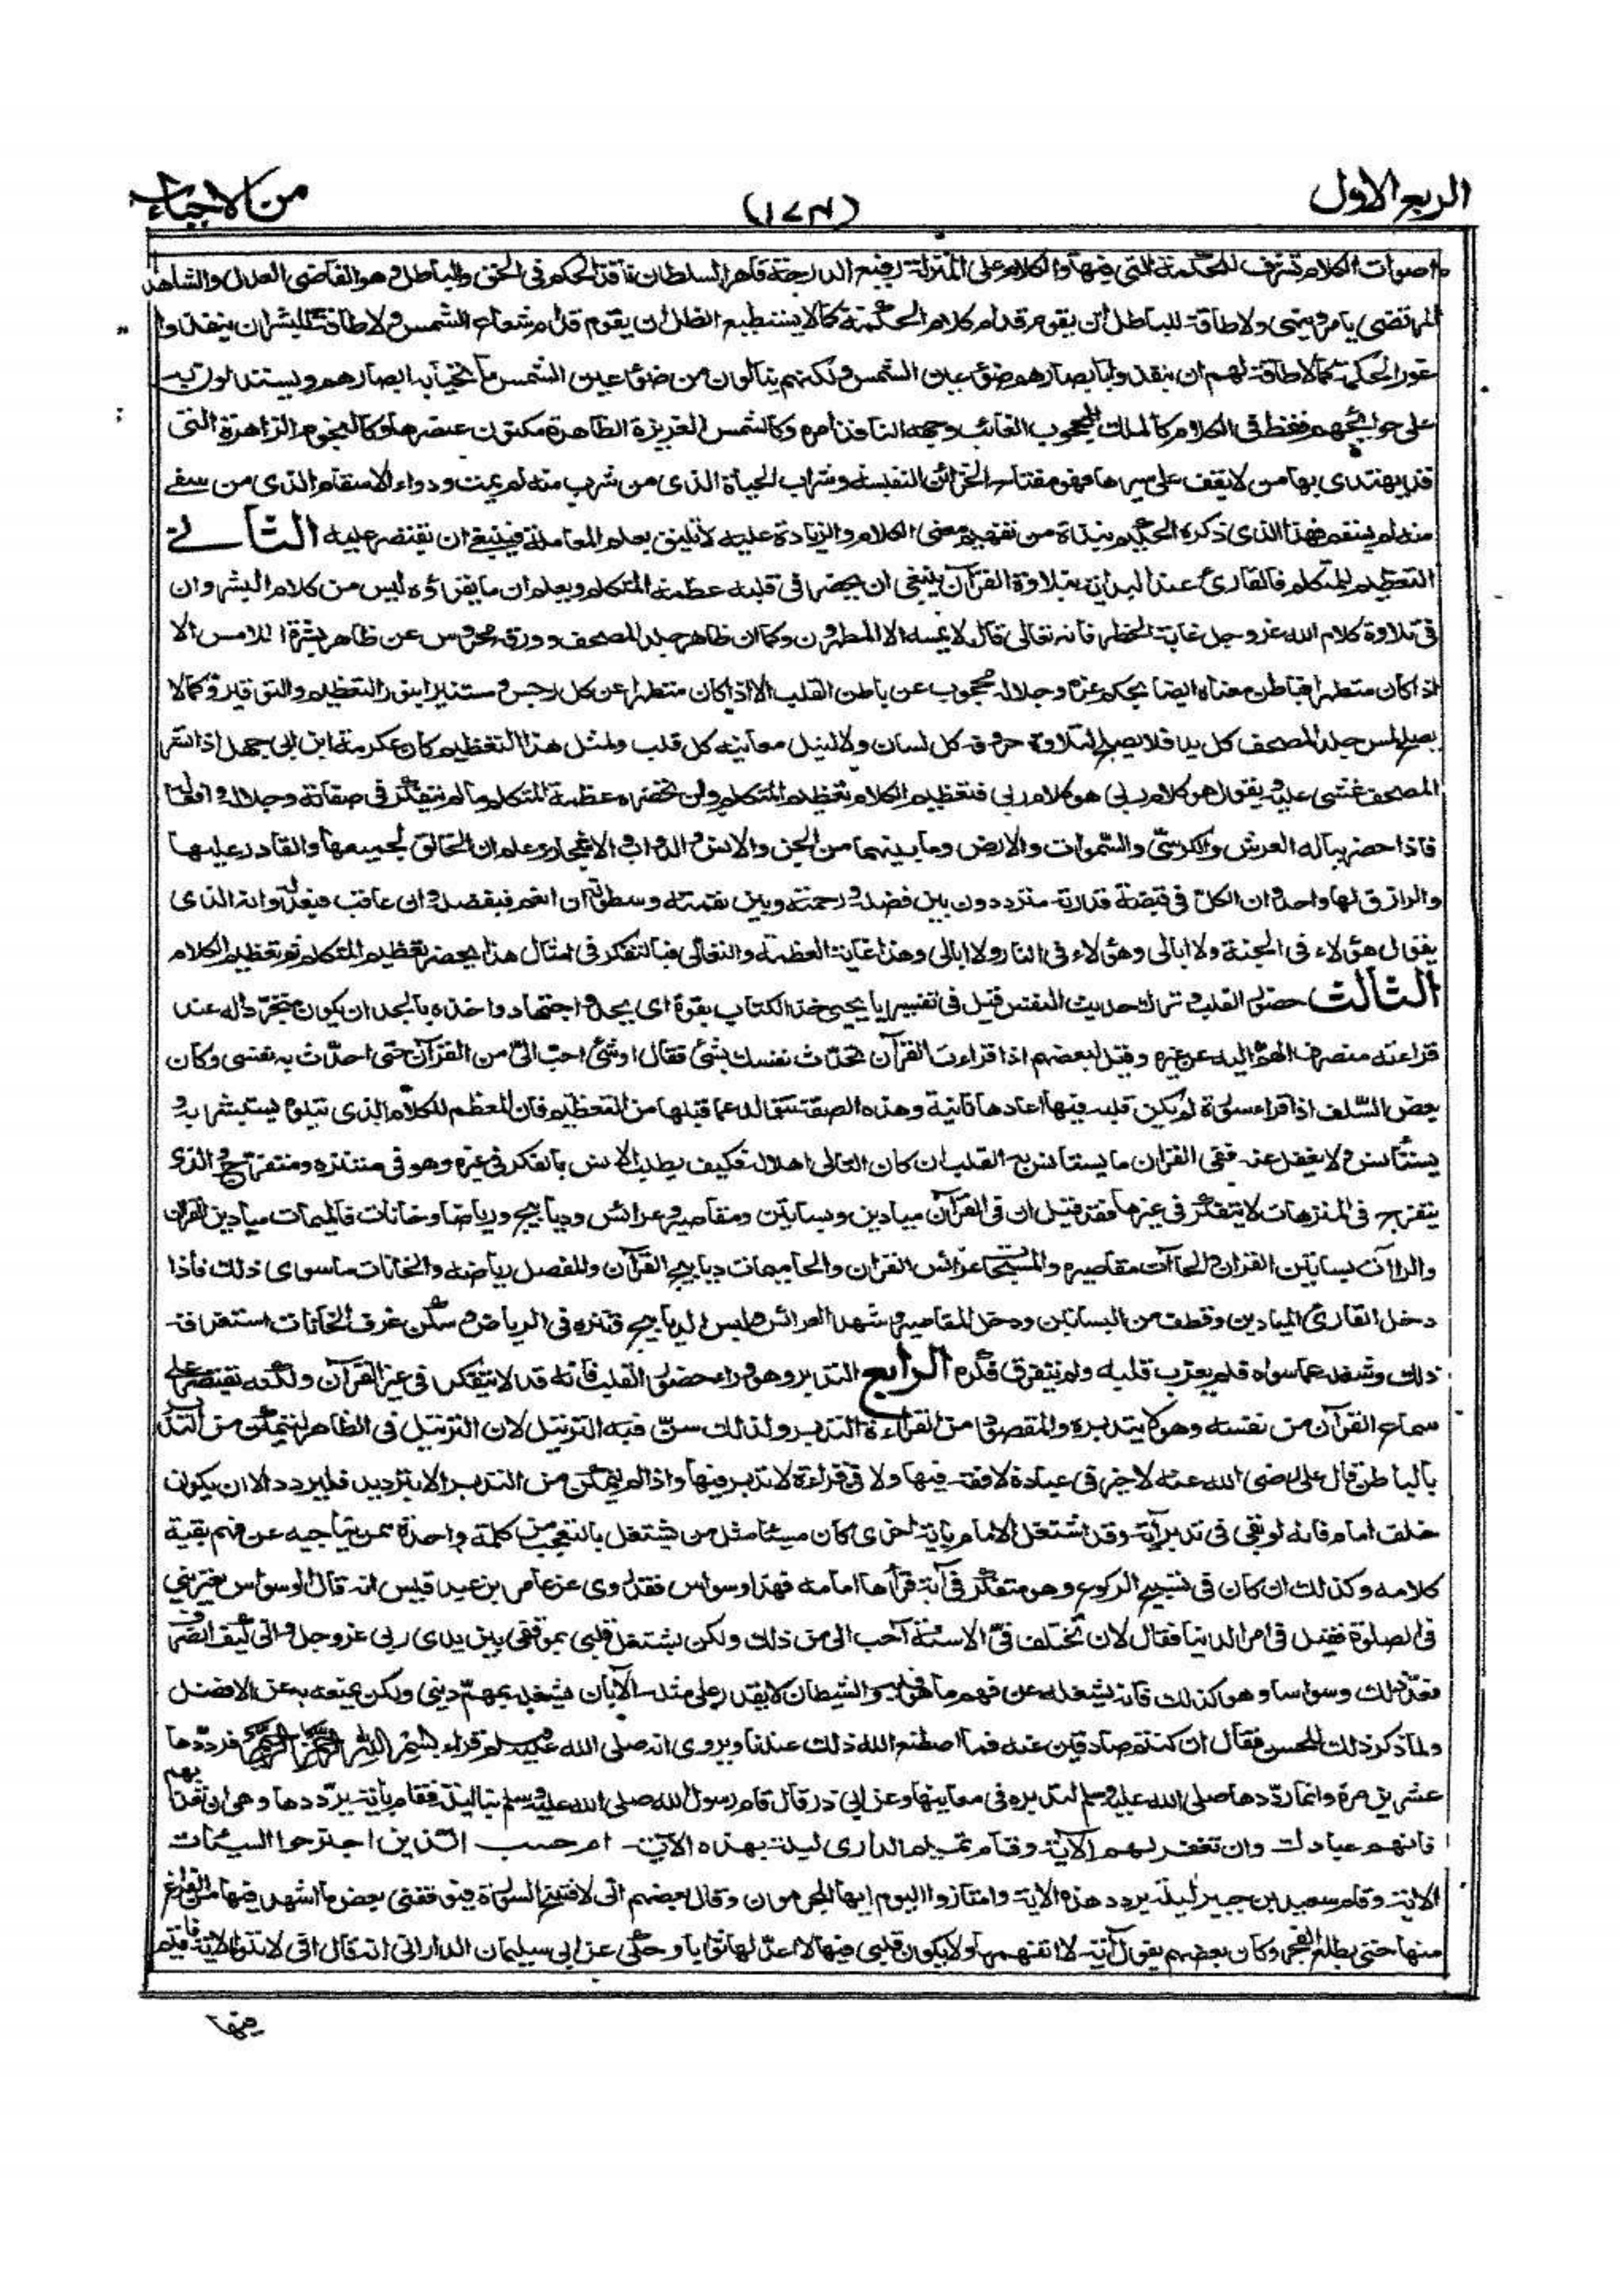 الربع الاول
(١٧٣)
من الاحياء
واصوات الكلام تشرف للحكمة التى فيها والكلام على المنزلة رفيع الدرجة قاهر السلطان نافذ الحكم فى الحق والباطل وهو القاضى العدل والشاهد
المرتضى يامر وينهى ولا طاقة للباطل ان يقوم قدام كلام الحكمة كما لا يستطيع الظل ان يقوم قدام شعاع الشمس ولا طاقة للبشر ان ينفذوا
غور الحكمة كما لا طاقة لهم ان ينفذوا بابصارهم ضوء عين الشمس ولكنهم ينالون من ضوء عين الشمس ما تحيا به ابصارهم ويستدلون به
على حوائجهم فقط فى الكلام كالملك المحجوب الغائب وجهه النافذ امره وكالشمس العزيزة الظاهرة مكنون عنصرها وكالنجوم الزاهرة التى
قد يهتدى بها من لا يقف على سيرها فهو مفتاح الخزائن النفيسة وشراب الحياة الذى من شرب منه لم يمت ودواء الاسقام الذى من سقى
منه لم يسقم فهذا الذى ذكره الحكيم نبذة من تفهيم معنى الكلام والزيادة عليه لا تليق بعلم المعاملة فينبغى ان نقتصر عليه الثانى
التعظيم للمتكلم فالقارئ عند البداية بتلاوة القرآن ينبغى ان يحضر فى قلبه عظمة المتكلم ويعلم ان ما يقراؤه ليس من كلام البشر وان
فى تلاوة كلام الله عز وجل غاية الخطر فانه تعالى قال لا يمسه الا المطهرون وكما ان ظاهر جلد المصحف وورقه محروس عن ظاهر بشرة اللامس الا
اذا كان متطهرا فباطن معناه ايضا بحكم عزه وجلاله محجوب عن باطن القلب الا اذا كان متطهرا عن كل رجس ومستنيرا بنور التعظيم والتوقير وكما لا
يصلح لمس جلد المصحف كل يد فلا يصلح لتلاوة حروفه كل لسان ولا لنيل معانيه كل قلب ولمثل هذا التعظيم كان عكرمة ابن ابى جهل اذا نشر
المصحف غشى عليه ويقول هو كلام ربى هو كلام ربى فتعظيم الكلام تعظيم المتكلم ولن تحضره عظمة المتكلم ما لم يتفكر فى صفاته وجلاله وافعاله
فاذا حضر بباله العرش والكرسى والسموات والارض وما بينهما من الجن والانس والدواب والاشجار وعلم ان الخالق لجميعها والقادر عليها
والرازق لها واحد وان الكل فى قبضة قدرته مترددون بين فضله ورحمته وبين نقمته وسطوته ان انعم فبفضله وان عاقب فبعدله وانه الذى
يقول هؤلاء فى الجنة ولا ابالى وهؤلاء فى النار ولا ابالى وهذا غاية العظمة والتعالى فبالتفكر فى امثال هذا يحضر تعظيم المتكلم ثم تعظيم الكلام
الثالث حضور القلب وترك حديث النفس قيل فى تفسير يا يحيى خذ الكتاب بقوة اى بجد واجتهاد واخذه بالجد ان يكون متجردا له عند
قراءته منصرف الهم اليه عن غيره وقيل لبعضهم اذا قراءت القرآن تحدث نفسك بشئ فقال او شئ احب الى من القرآن حتى احدث به نفسى وكان
بعض السلف اذا قراء سورة لم يكن قلبه فيها اعادها ثانية وهذه الصفة تتولد عما قبلها من التعظيم فان المعظم للكلام الذى يتلوه يستبشر به و
يستأنس ولا يغفل عنه ففى القران ما يستأنس به القلب ان كان التالى اهلا له فكيف يطلب الانس بالفكر فى غيره وهو فى متنزه ومتفرج والذى
يتفرج فى المنزهات لا يتفكر فى غيرها فقد قيل ان فى القرآن ميادين وبساتين ومقاصير وعرائس وديابيج ورياضا وخانات فالميمات ميادين القران
والراآت بساتين القران والحاآت مقاصيره والمسبحات عرائس القران والحاميمات ديابيج القرآن والمفصل رياضه والخانات ما سوى ذلك فاذا
دخل القارئ الميادين وقطف من البساتين ودخل المقاصير وشهد العرائس ولبس الديابيج وتنزه فى الرياض وسكن غرف الخانات استغرقه
ذلك وشغله عما سواه فلم يعزب قلبه ولم يتفرق فكره الرابع التدبر وهو وراء حضور القلب فانه قد لا يتفكر فى غير القرآن ولكنه يقتصر على
سماع القرآن من نفسه وهو لا يتدبره والمقصود من القراءة التدبر ولذلك سن فيه الترتيل لان الترتيل فى الظاهر ليتمكن من التدبر
بالباطن قال على رضى الله عنه لا خير فى عبادة لا فقه فيها ولا فى قراءة لا تدبر فيها واذا لم يتمكن من التدبر الا بترديد فليردد الا ان يكون
خلف امام فانه لو بقى فى تدبر آية وقد اشتغل الامام بآية اخرى كان مسيئا مثل من يشتغل بالتعجب من كلمة واحدة ممن يناجيه عن فهم بقية
كلامه وكذلك ان كان فى تسبيح الركوع وهو متفكر فى آية قرأها امامه فهذا وسواس فقد روى عن عامر بن عبد قيس انه قال الوسواس يعترينى
فى الصلوة فقيل فى امر الدنيا فقال لان تختلف فى الاسنة احب الى من ذلك ولكن يشتغل قلبى بموقفى بين يدى ربى عز وجل وانى كيف انصرف
فعد ذلك وسواسا وهو كذلك فانه يشغله عن فهم ما هو فيه والشيطان لا يقدر على مثله الا بان يشغله بمهم دينى ولكن يمنعه به عن الافضل
ولما ذكر ذلك للحسن فقال ان كنتم صادقين عنه فما اصطنع الله ذلك عندنا ويروى انه صلى الله عليه وسلم قراء بسم الله الرحمن الرحيم فرددها
عشرين مرة وانما رددها صلى الله عليه وسلم لتدبره فى معانيها وعن ابى ذر قال قام رسول الله صلى الله عليه وسلم بنا ليلة فقام بآية يرددها وهى ان تعذبهم
فانهم عبادك وان تغفر لهم الآية وقام تميم الدارى ليلة بهذه الآية ام حسب الذين اجترحوا السيئات
الاية وقام سعيد بن جبير ليلة يردد هذه الاية وامتازوا اليوم ايها المجرمون وقال بعضهم انى لافتتح السورة فيوقفنى بعض ما اشهد فيها من الفراغ
منها حتى يطلع الفجر وكان بعضهم يقول آية لا اتفهمها ولا يكون قلبى فيها لا اعد لها ثوابا وحكى عن ابى سليمان الدارانى انه قال انى لاتلو الاية فاقيم
فيها